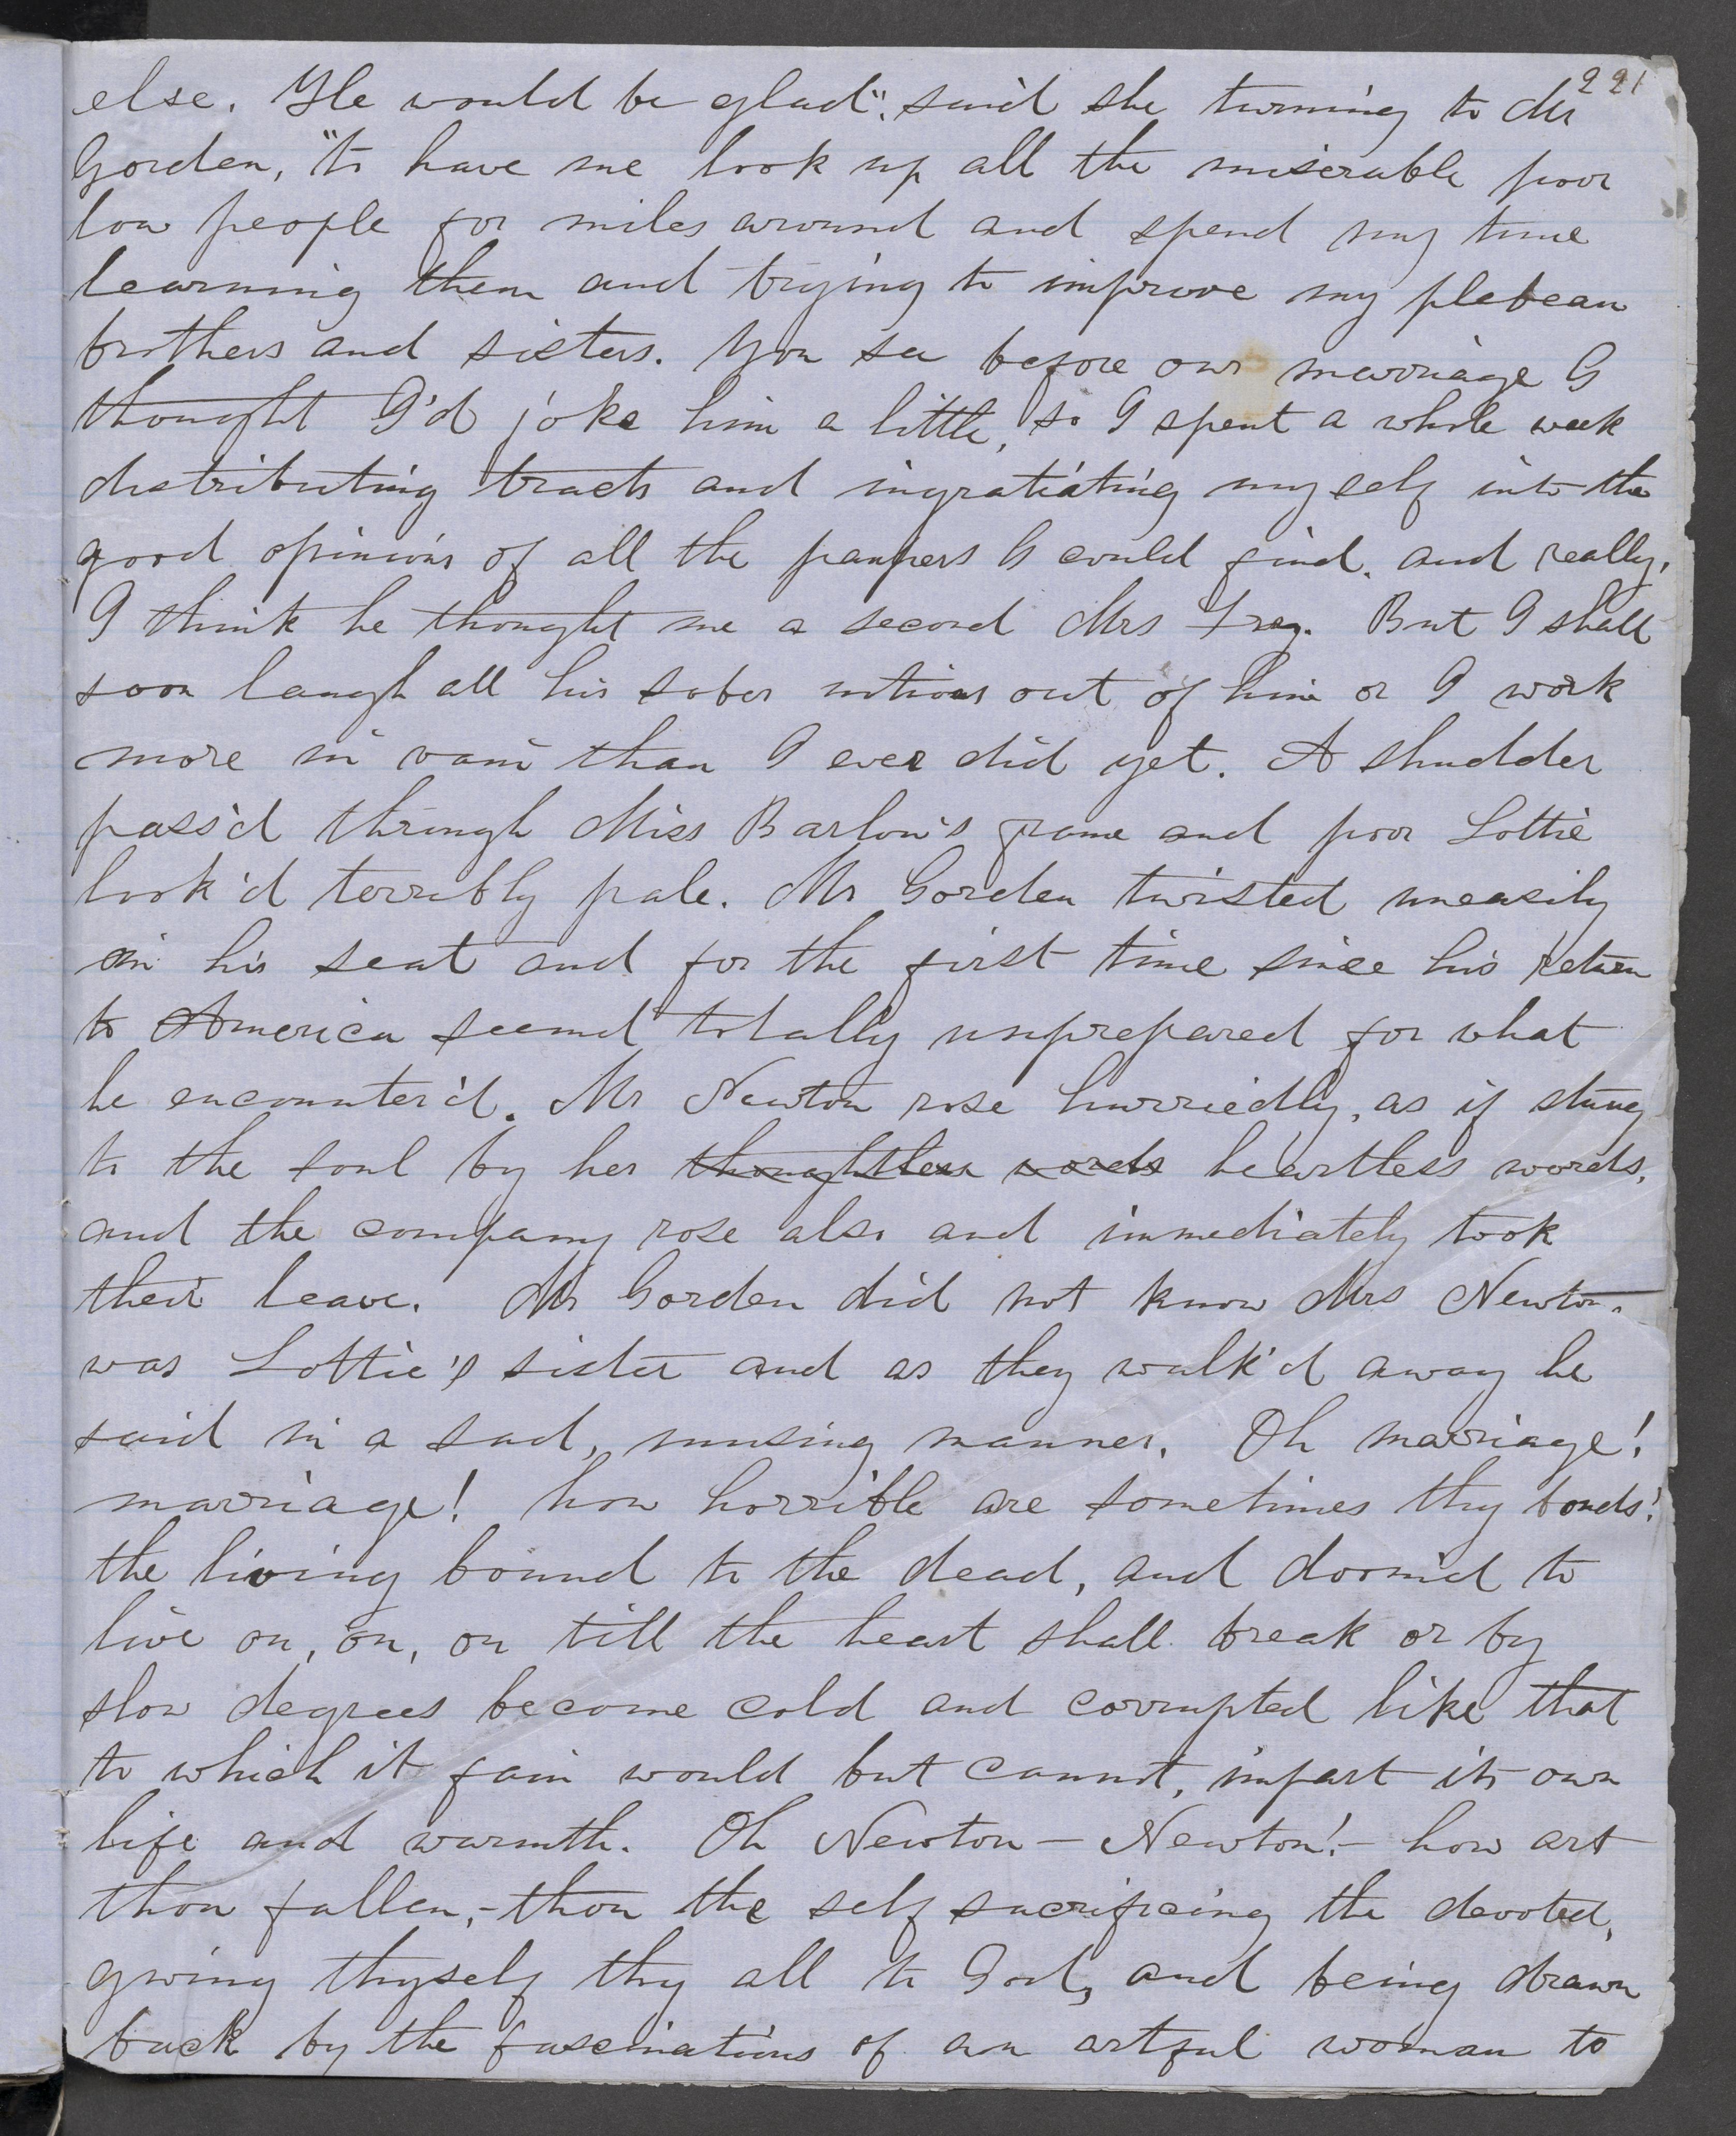 221
else. He would be glad", said she turning to Mr
Gorden, "to have me look up all the miserable poor
low people for miles around and spend my time
learning them and trying to improve my plebean
brothers and sisters. You see before our marriage I
thought I'd joke him a little, so I spent a whole week
distributing tracts and ingratiating myself into the
good opinions of all the paupers I could find. and really,
I think he thought me a second Mrs Fry. But I shall
soon laugh all his sober notions out of him or I work
more in vain than I ever did yet. A shudder
pass'd through Miss Barlow's frame and poor Lottie
look'd terribly pale. Mr Gorden twisted uneasily
in his seat and for the first time since his return
to America seemd totally unprepared for what
he encounter'd. Mr Newton rose hurriedly, as if stung
to the soul by her thoughtless words heartless words,
and the company rose also and immediately took
their leave. Mr Gorden did not know Mrs Newton
was Lottie's sister and as they walk'd away he
said in a sad, musing manner, Oh marriage!
marriage! how horrible are sometimes thy bonds!
the living bound to the dead, and doom'd to
live on, on, on till the heart shall break or by
slow degrees become cold and corrupted like that
to which it fain would but cannot, impart its own
life and warmth. Oh Newton – Newton! – how art
thou fallen, – thou the self sacrificing the devoted,
giving thyself thy all to God, and being drawn
back by the fascinations of an artful woman to